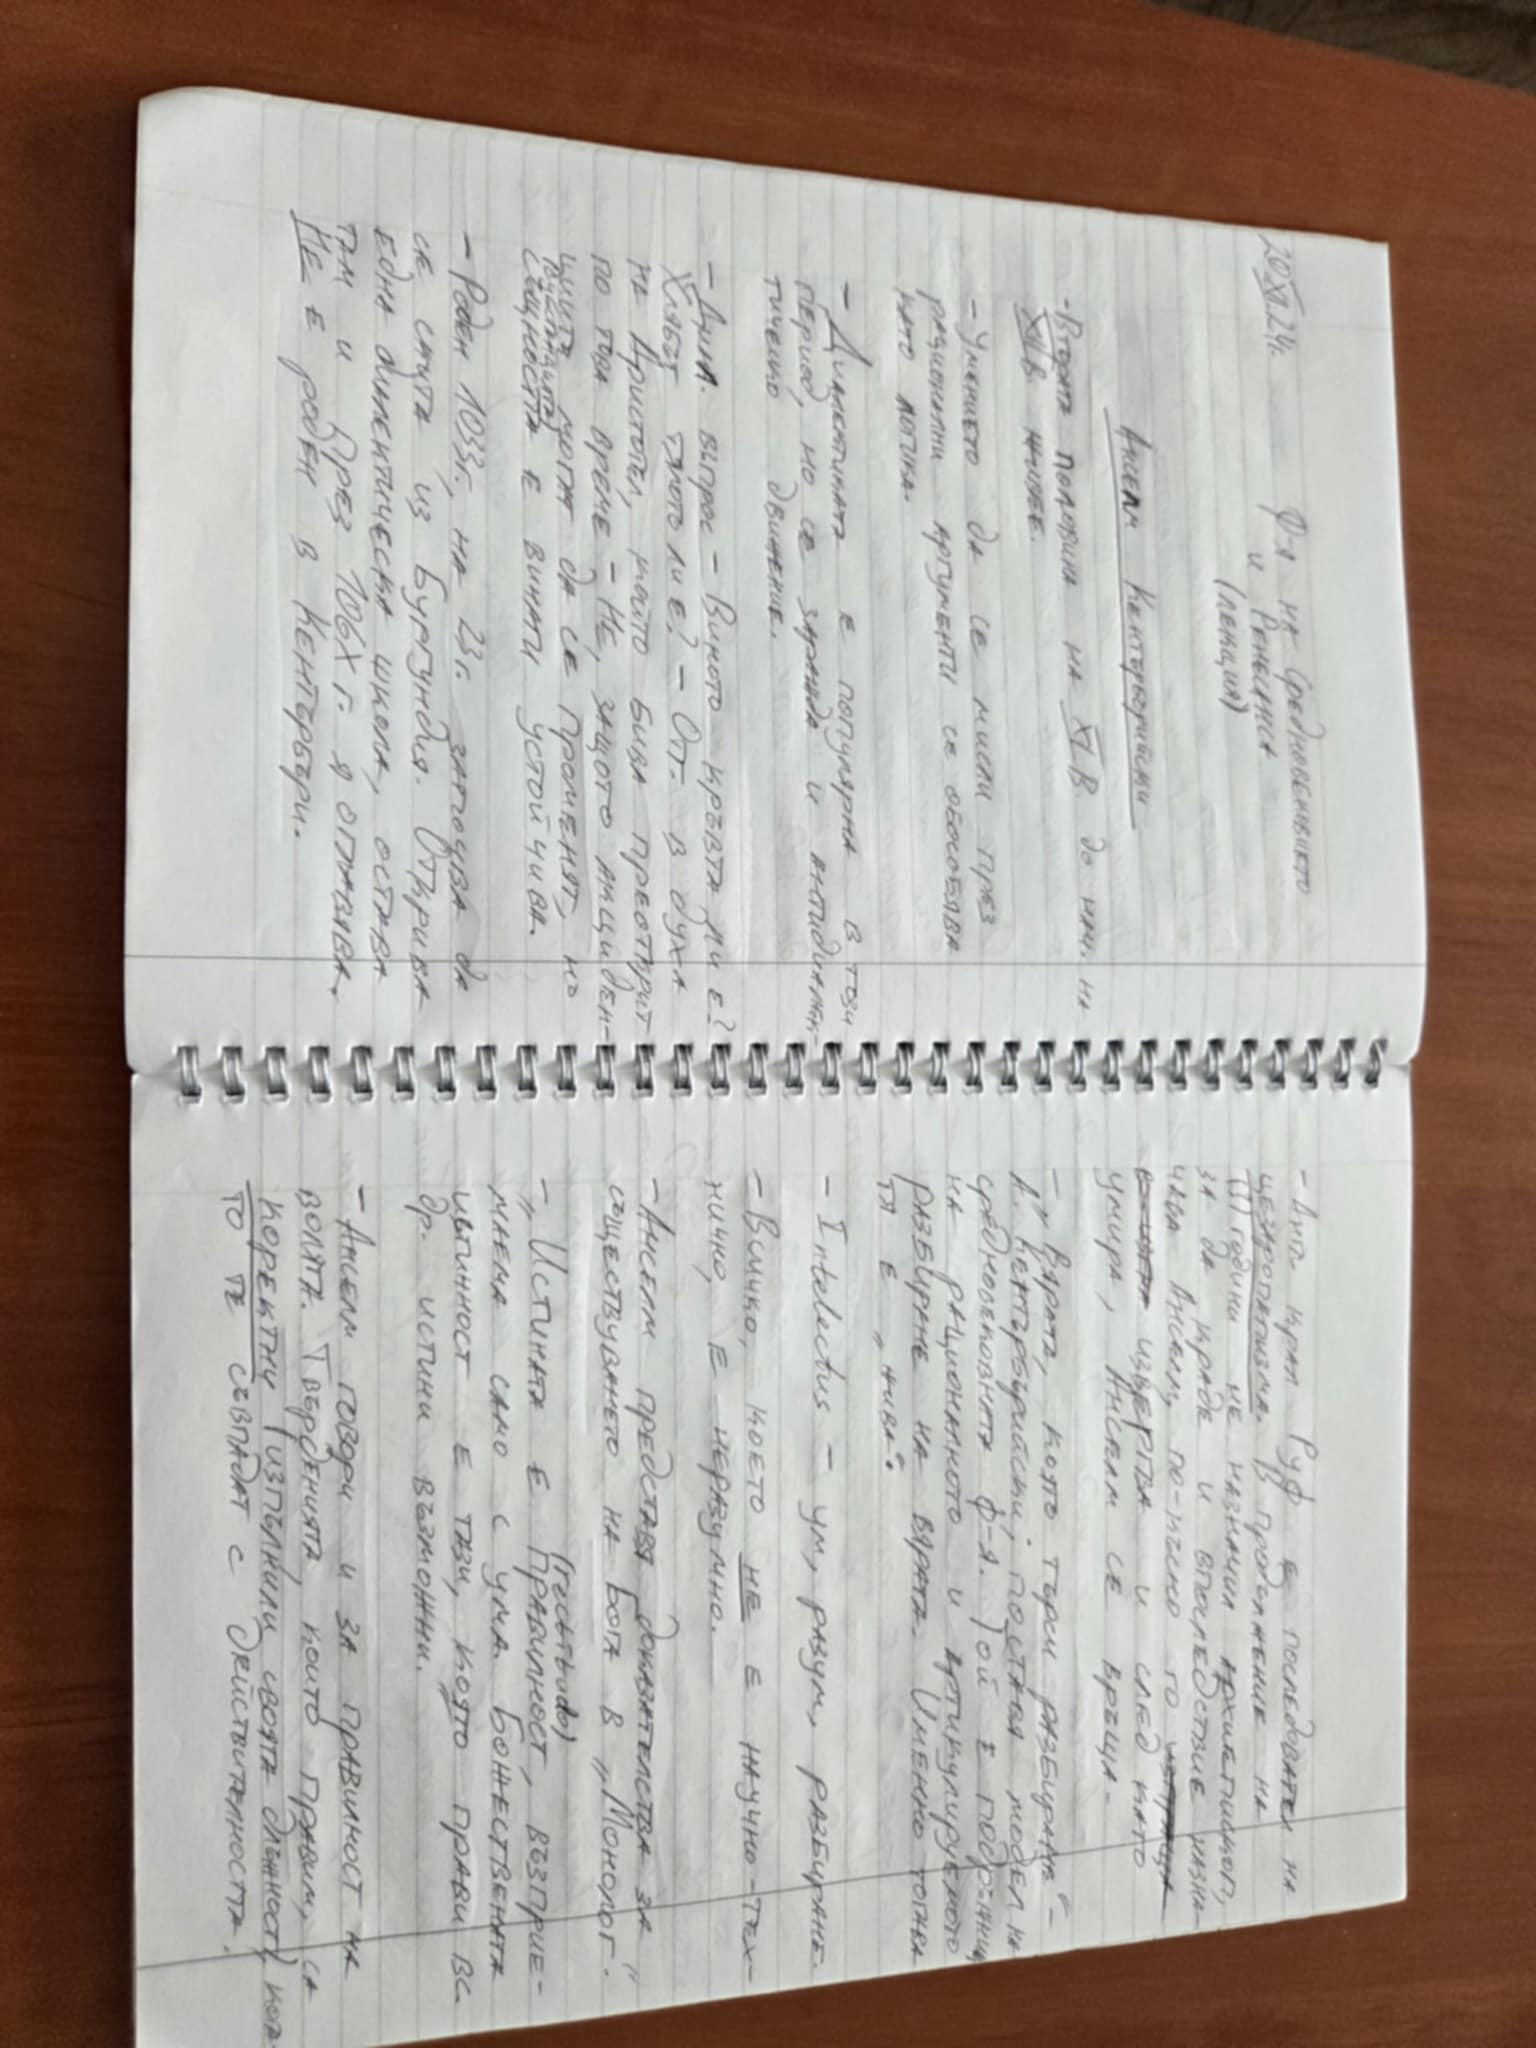 20.XII.24г.
Ф-я на Средновековието
и Ренесанса
(лекция)
Анселм Кентърбърийски
-Втората половина на XI в. до нач. на
XII в. живее.
- Умението да се мисли през
рационални аргументи се обособява
като логика.
- Диалектиката е популярна в този
период, но се заражда и антидиалек-
тическо движение.
- Диал. въпрос - Виното кръвта ли е?
Хлябът тялото ли е? - Отг. в духа
на Аристотел, който бива преоткрит
по това време - Не, защото акциден-
циите могат да се променят, но
(субстанцията)
същността е винаги устойчива.
- Роден 1033г., на 23г. започва да
се скита из Бургундия. Открива
една диалектическа школа, остава
там и през 106X г. я оглавява.
Не е роден в Кентърбъри.
- Англ. крал Руф е последовател на
цезаропапизма. В продължение на
(3) години не назначил архиепископ,
за да краде и впоследствие назна-
чава Анселм, по-късно го изпраща
в извергва и след като
умира, Анселм се връща.
- „Вярата, която търси разбиране" -
А. Кентърбърийски; поставя модел на
средновековната ф-я. Той е подръжник
на рационалното и артикулируемото
разбиране на вярата. Именно тогава
тя е „жива".
- Intelectus - ум, разум, разбиране.
- Всичко, което не е научно-тех-
нично, е неразумно.
- Анселм представя доказателства за
съществуването на Бога в „Монолог".
(rectitudo)
- „Истината е правилност, възприе-
маема само с ума. Божествената
истинност е тази, която прави вс.
др. истини възможни."
- Анселм говори и за правилност на
волята. Твърденията, които правим, са
коректни (изпълнили своята длъжност), кога-
то те съвпадат с действителността.